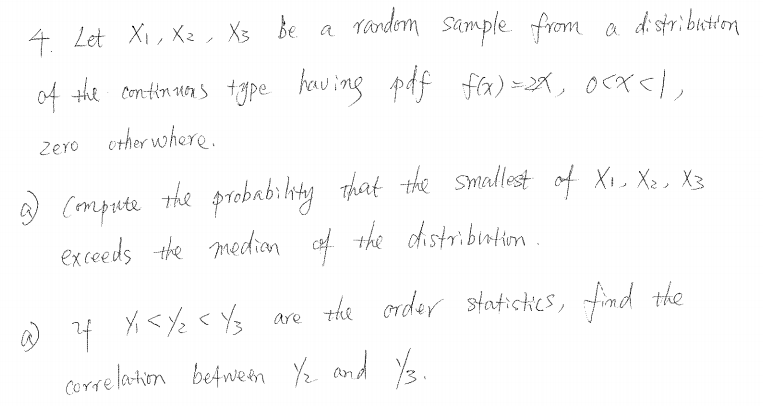 4. Let X1, X2, X3 be a random sample from a distribution
of the continuous type having pdf f(x) = 2x, 0<x<1,
zero otherwhere.
a) Compute the probability that the smallest of X1, X2, X3
exceeds the median of the distribution.
a) If Y1 < Y2 < Y3 are the order statistics, find the
correlation between Y2 and Y3.